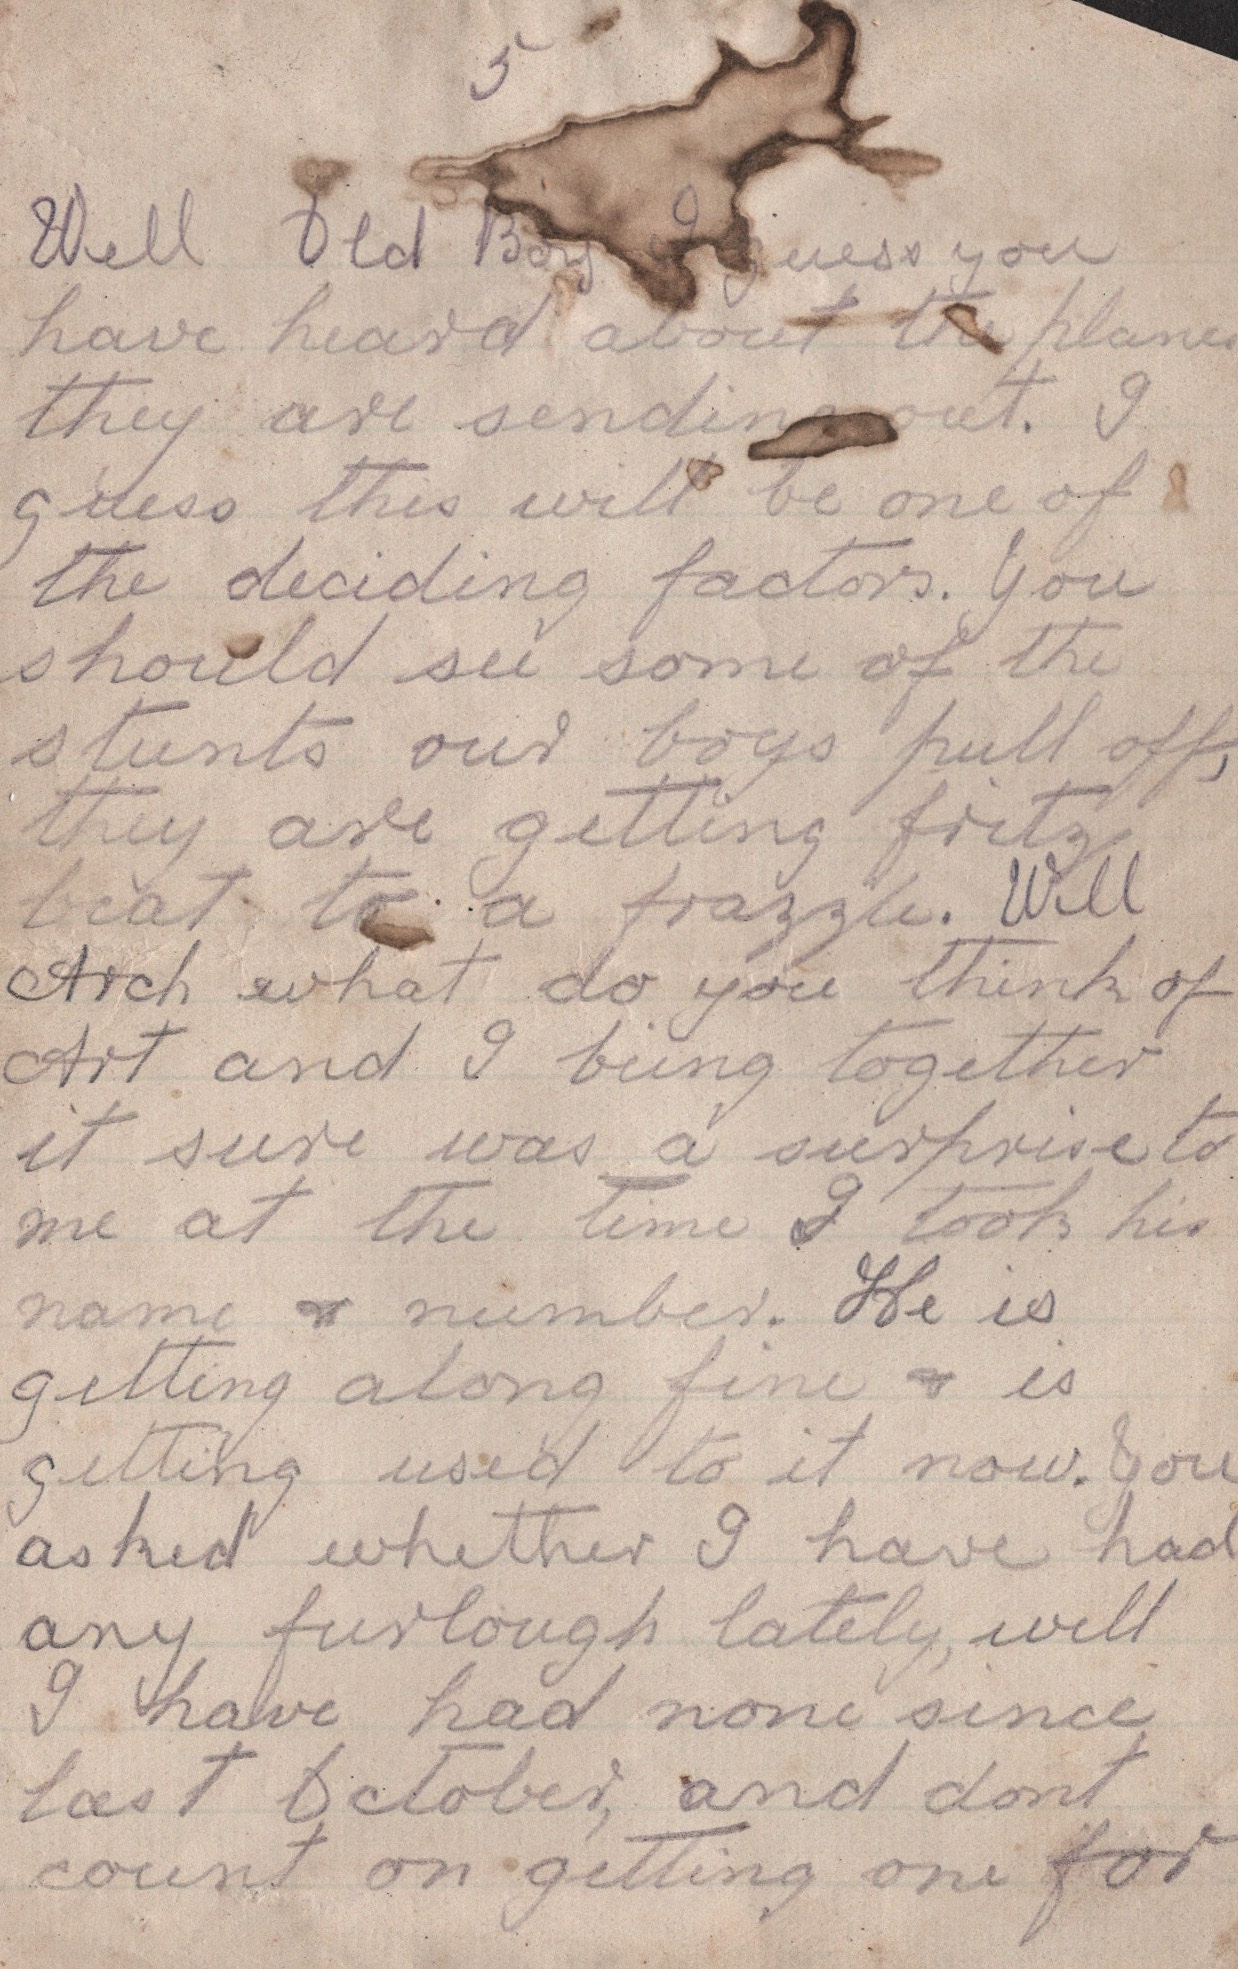 5
Well Old Boy I guess you
have heard about the planes
they are sending out. I
guess this will be one of
the deciding factors. You
should see some of the
stunts our boys pull off,
they are getting fritz
beat to a frazzle. Well
Arch what do you think of
Art and I being together
it sure was a surprise to
me at the time I took his
name & number. He is
getting along fine & is
getting used to it now. You
asked whether I have had
any furlough lately, well
I have had none since
last October, and dont
count on getting one for